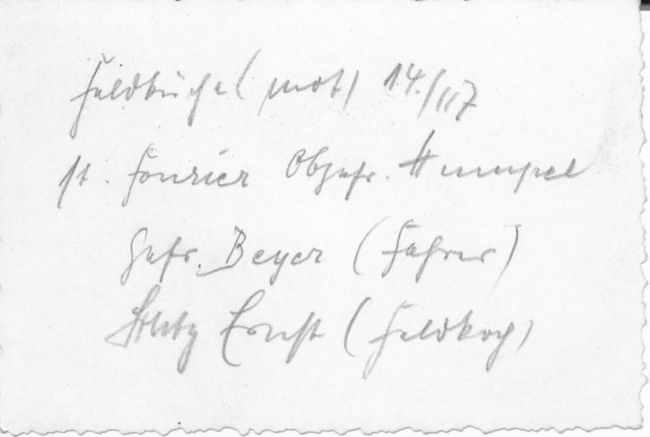 Feldküche (mot) 14./117
st. Fourier Obgefr. Hempel
Gefr. Beyer (Fahrer)
Ernst (Feldkoch)